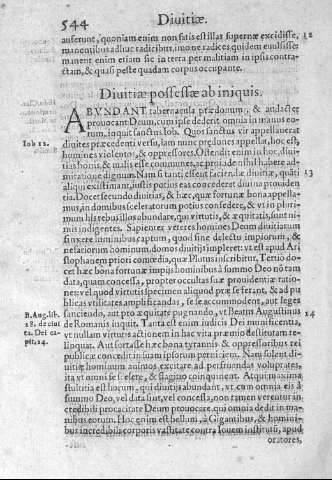 544
Diuitiæ.
auferunt, quoniam enim non satis est illas supernæ excidisse, 12
manentibus adhuc radicibus, imo ne radices quidem euulsisse
manent enim etiam sic in terra per malitiam in ipsis contra-
ctam, & quasi peste quadam corpus occupante.
Diuitiæ possessæ ab iniquis.
ABVNDANT tabernacula prædonum, & audacter
prouocant Deum, cum ipse dederit omnia in manus eo-
Iob 12. rum, inquit sanctus Iob. Quos sanctus vir appellauerat
diuites præcedenti versu, iam nunc prædones appellat, hoc est,
homines violentos, & oppressores. Ostendit enim in hoc, diui-
tias bonis, & malis esse communes, ac proinde nihil habere ad-
miratione dignum. Nam si tanti essent faciendæ diuitiæ, quāti 13
aliqui existimant, iustis potius eas concederet diuina prouiden
tia. Docet secundo diuitias, & hæc, quæ fortunæ bona appella-
mus, in domibus sceleratorum potius considere, & vt in pluri-
mum his rebus illos abundare, qui virtutis, & æquitatis, sunt ni-
mis indigentes. Sapienter veteres homines Deum diuitiarum
finxere inminibus captum, quod sine delectu impiorum, &
nefariorum hominum, domos diuitijs impleret: vt est apud Ari
stophanem priori comœdia, quæ Plutus inscribitur. Tertio do-
cet hæc bona fortunæ impijs hominibus à summo Deo nō tam
data, quam concessa, propter occultas suæ prouidentiæ ratio-
nes: vel quod virtutis specimen aliquod præ se ferant, & ad pu
blicas vtilitates amplificandas, se se accommodent, aut leges
B. Aug. lib. sanciendo, aut pro æquitate pugnando, vt Beatus Augustinus 14
18. de ciui de Romanis inquit. Tanta est enim iudicis Dei munificentia,
ta. Dei ca- vt nullam virtutis actionem in hac vita præmio destitutam re-
pit. 14. linquat. Aut fortasse hæc bona tyrannis & oppressoribus rei
publicæ concedit in suam ipsorum perniciem. Nam solent di-
uitiæ hominum animos excitare ad perfruendas voluptates,
ita vt omni se scelere, & flagitio coinquinent. Atqui maxima
stultitia est horum, qui diuitijs abundant, vt cum omnia eis à
summo Deo, vel data sint, vel concessa, non tamen verentur in
credibili procacitate Deum prouocare, qui omnia dedit in ma-
nibus eorum. Hoc enim est bellum, à Gigantibus, & homini-
bus incredibilis corporis vastitate contra Iouem institutū, apud
oratores,